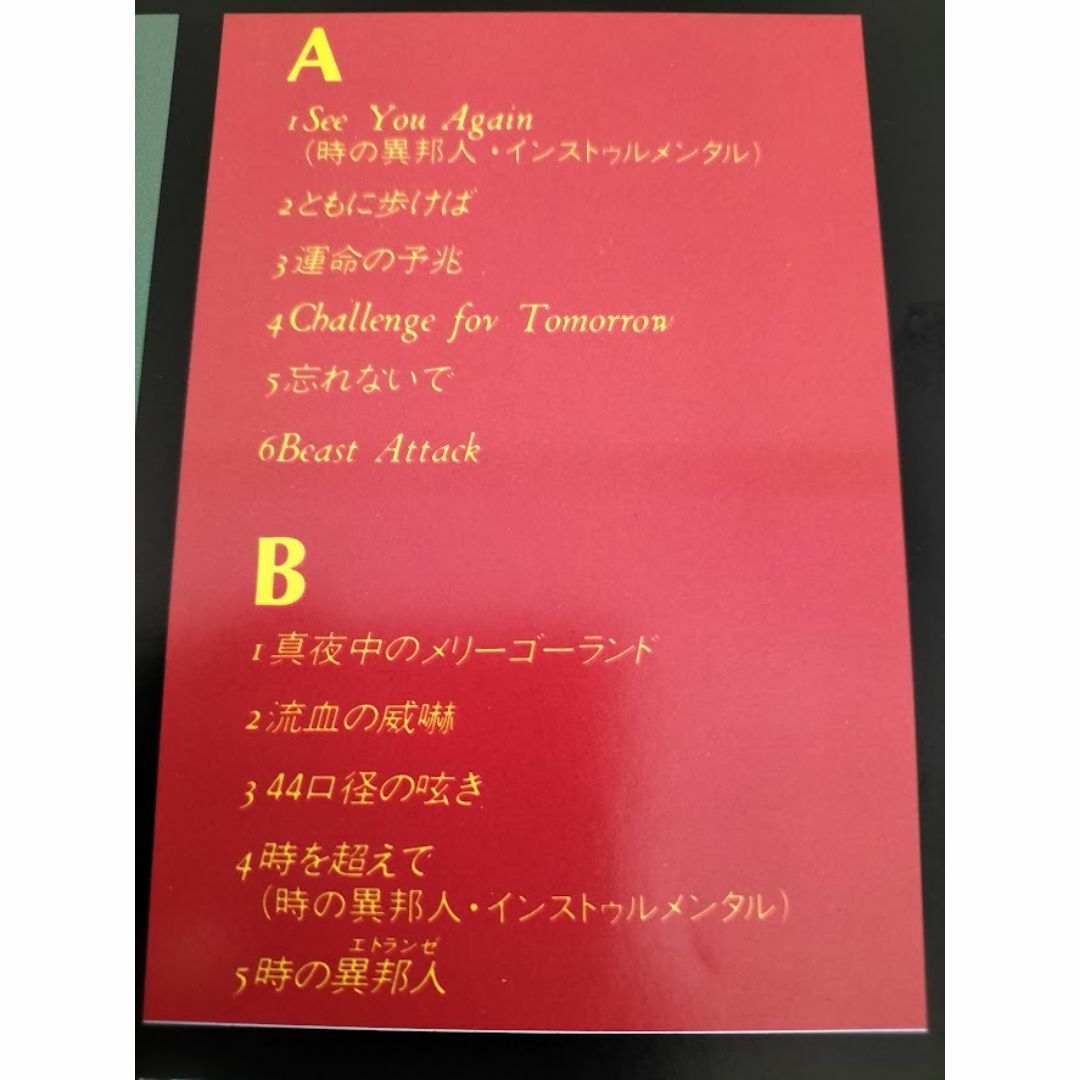 A
1 See You Again
(時の異邦人・インストゥルメンタル)
2 ともに歩けば
3 運命の予兆
4 Challenge for Tomorrow
5 忘れないで
6 Beast Attack
B
1 真夜中のメリーゴーランド
2 流血の威嚇
3 44口径の呟き
4 時を超えて
(時の異邦人・インストゥルメンタル)
エトランゼ
5 時の異邦人